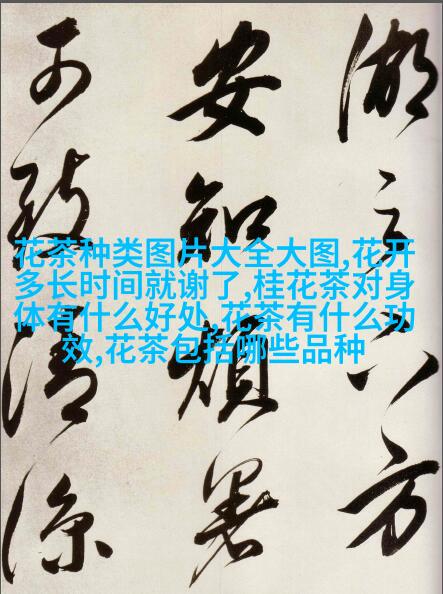 湖
方
安知煩暑
可致清涼
花茶种类图片大全大图,花开
多长时间就谢了,桂花茶对身
体有什么好处,花茶有什么功
效,花茶包括哪些品种